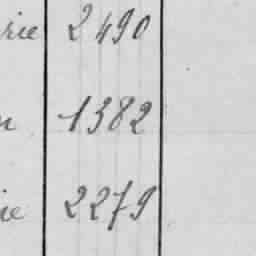 rie 2490
n 1382
ie 2279